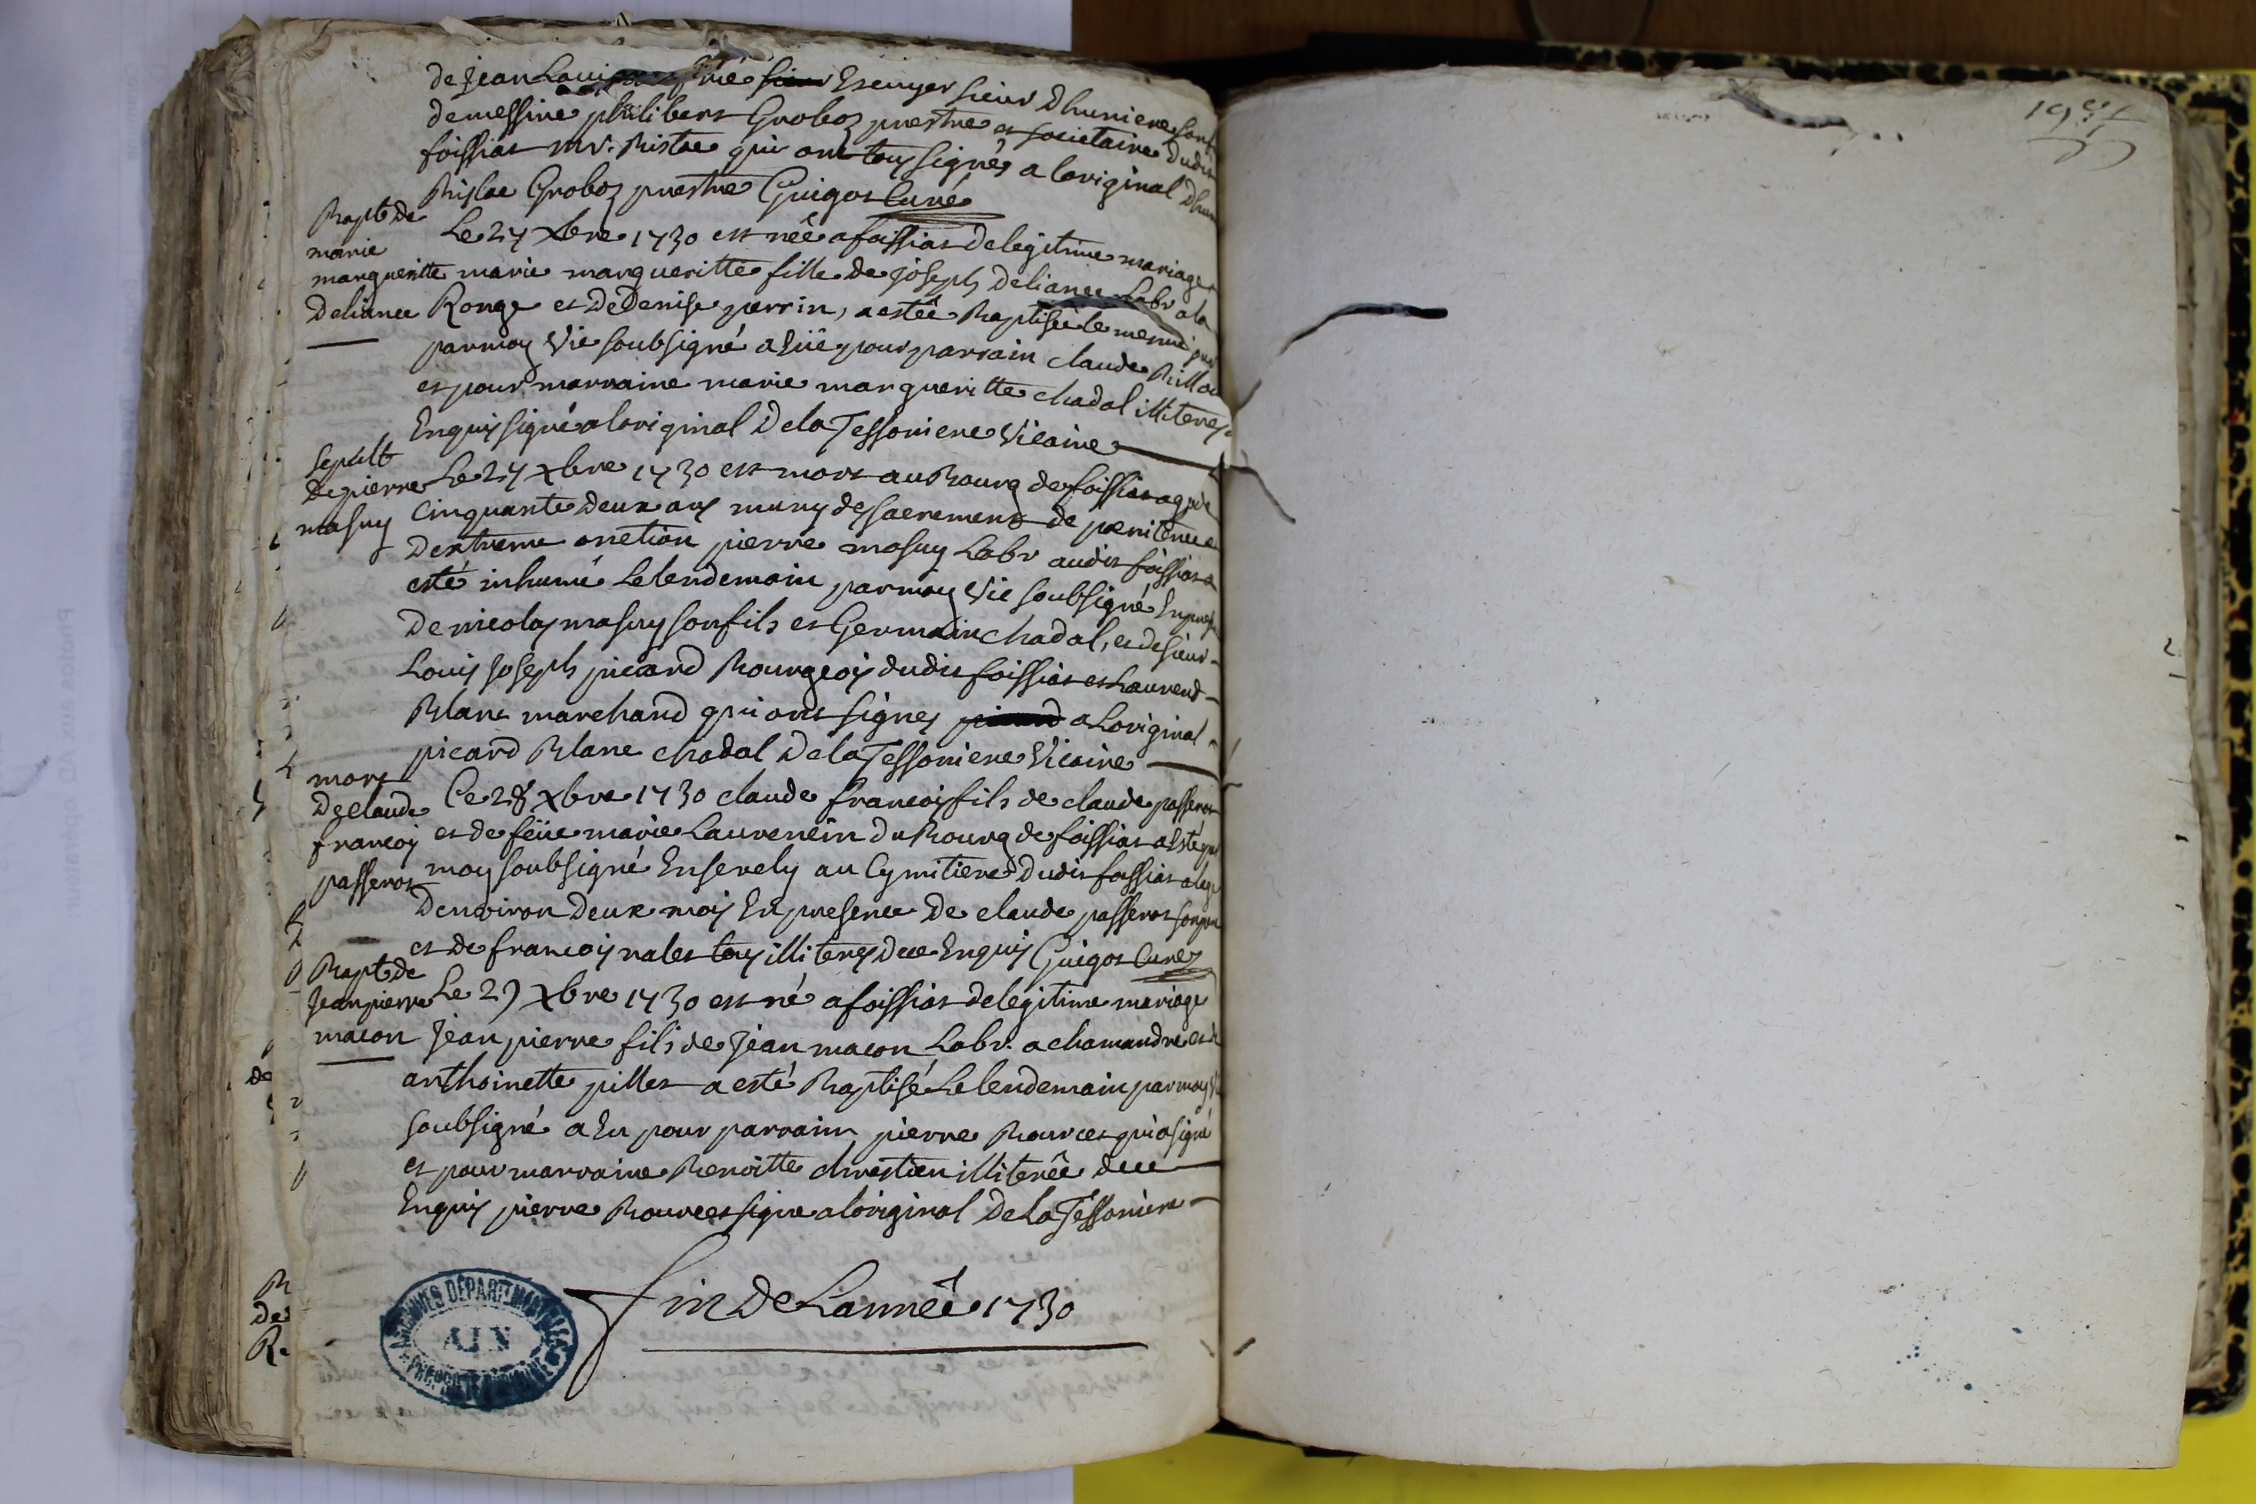 de Jean Louis Escuyer sieur Dhumiere
de messire philibert Groboz prestre et societaire dudit
foissiat qui ont tous signés a loriginal
Groboz prestre Guigot Curé
Bapt de
marie
margueritte
Deliance
Le 27 xbre 1730 est née a foissiat de legitime mariage
marie margueritte fille de Joseph Deliance Labr a la
Ronge et de Denise perrin, a estée Baptisée le mesme jour
par moy Vic soubsigné a Eüe pour parrain claude
et pour marraine marie margueritte chadal illiteres
Enquis signé a loriginal De la Tessoniere Vicaire
Sepult
de pierre
masuy
Le 27 xbre 1730 est mort au Bourg de foissiat agé de
Cinquante deux ans muny des sacrements de pœnitence
Dextreme onction pierre masuy Labr audit foissiat a
esté inhumé Le lendemain par moy Vic soubsigné En
De nicolas masuy son fils et Germain chadal, et de sieur
Louis Joseph picard Bourgeois dudit foissiat et Laurend
Blanc marchand qui ont signes a Loriginal
picard Blanc chadal De la Tessoniere Vicaire
mort
De claude
francois
passerat
Ce 28 xbre 1730 claude francois fils de claude passerat
et de feüe marie Laurencin du Bourg de foissiat a Esté par
moy soubsigné Ensevely au Cymitiere dudit foissiat
Denviron deux mois En presence De claude passerat son
et de francois nalet tous illiteres de ce Enquis Guigot Curé
Bapt de
Jean pierre
macon
Le 29 xbre 1730 est né a foissiat de legitime mariage
Jean pierre fils de Jean macon Labr. a chamandre et de
anthoinette pillet a esté Baptisé Le lendemain par moy
soubsigné a Eu pour parrain pierre Bourcet qui a signé
et pour marraine Benoitte chrestien illiterée de ce
Enquis pierre Bourcet signe a loriginal De la Tessoniere
fin De Lannêe 1730
ARCHIVES DÉPARTEMENTALES
AIN